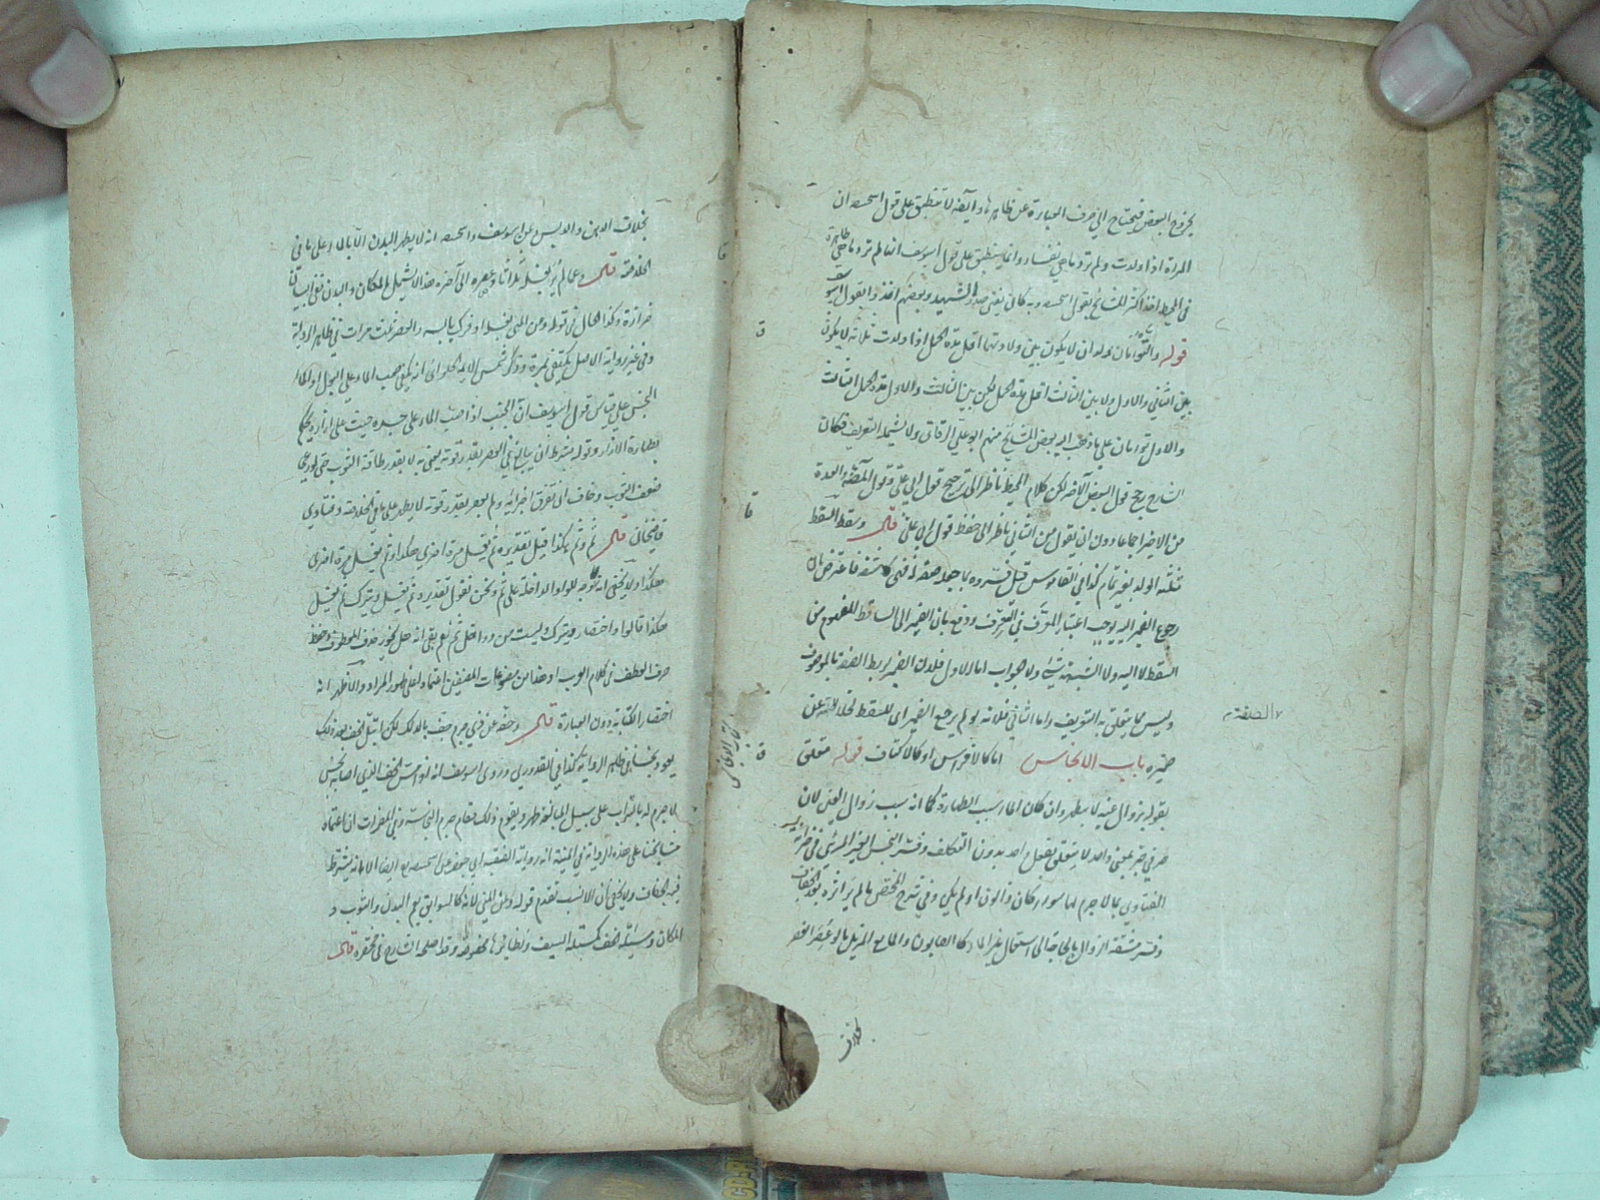 بخروج البعض فيحتاج الى صرف العبارة عن ظاهرها وايضا لا ينطبق على قول ابيحنيفة ان
المراة اذا ولدت ولم تر دما هي نفساء وانما ينطبق على قول ابي يوسف انها لم تر دما هي طاهرة
في المحيط اخذ اكثر المشايخ بقول ابيحنيفة وبه كان يفتى صدر الشهيد وبعضهم اخذوا بقول ابي يوسف
قوله والتوأمان ولدان لا يكون بين ولادتهما اقل مدة الحمل اذا ولدت ثلثة لا يكون
بين الثاني والاول ولا بين الثالث اقل مدة الحمل لكن بين الثالث والاول مدة الحمل الثالث
والاول توأمان على ما ذهب اليه بعض المشايخ منهم ابو علي الدقاق ولا يشمله التعريف فكان
الشارح رجح قول البعض الآخر لكن كلام المحيط ناظر الى ترجيح قول ابي علي وقول المصنف والعدة
من الاخر اجماعا دون ان يقول من الثاني ناظر الى حفظ قول ابي علي قال وسقط السقط
مثلثه الولد بغير تمام كذا في القاموس قيل
رجوع الضمير اليه يوجب اعتبار المعرف في التعريف ودفع بان الضمير الى الساقط المفهوم من
السقط لا اليه ولا الشبهة بشئ ولا جواب اما الاول فلان الضمير يربط الصفة بالموصوف
وليس مما يتعلق به التعريف واما الثاني فلانه لو لم يرجع الضمير الى السقط لخلا الصفة عن
ضميره باب الانجاس اما كالافراس او كالاكتاف قوله متعلق
بقوله بزوال عينه لا بيطهر وان كان الماء سبب الطهارة كما انه سبب زوال العين لان
حرفي جر بمعنى واحد لا يتعلق بفعل احد بدون التكلف وفسر النجس الغير المرئي في خزانة
الفتاوى بما لا جرم لها سواء كان ذا لون او لم يكن وفي شرح المختصر ما لم ير اثره بعد الجفاف
وفسر مشقة الزوال بالحاجة الى استعمال غير الماء كالصابون والمايع المزيل بالو عصر انعصر
بخلاف
الصفة
باب الانجاس
بخلاف الدهن والدبس عن ابي يوسف وابيحنيفة انه لا يطهر البدن الا بالماء على ما في
الخلاصة قال وعما لم ير بغسله ثلاثا وعصره الى آخره هذا لا يشمل المكان والبدن ففي البيان
حزازة وكذا الحال في قوله وعن المني بغسله او فرك يابسه والعصر ثلث مرات في ظاهر الرواية
وفي غير رواية الاصل يكتفى بمرة وذكر شمس الائمة الحلوائي انه يكفي صب الماء على البول او الماء
النجس على قياس قول ابي يوسف ان الجنب اذا صب الماء على جسده حيث على ازاره يحكم
بطهارة الازار وقوله بشرط ان يبالغ في العصر بقدر قوته يعني به لا بقدر طاقة الثوب حتى لو
ضعف الثوب وخاف ان تفرق اجزائه ولم يعصر بقدر قوته لا يطهر على ما في الخلاصة وفتاوى
قاضيخان قال ثم وثم هكذا قيل تقديره ثم يغسل مرة اخرى هكذا وثم يغسل مرة اخرى
هكذا ولا يخفى انه لا توجه للواو الداخلة على ثم ونحن نقول تقديره ثم يغسل ويترك ثم يغسل
هكذا قالوا واختصار ويترك ليست من دواخل ثم نعم بقي انه هل يجوز حذف المعطوف وحفظ
حرف العطف في كلام العرب او هذا من مصنوعات المصنفين اعتمادا على ظهور المراد والاظهر انه
اختصار الكتابة دون العبارة قال وخفه عن ذي جرم جف بالدلك لكن ابتل الخف بعد ذلك
يعود نجسا في ظاهر الرواية كذا في القدوري وروى ابي يوسف انه لو مسح الخف الذي اصابه نجس
لا جرم له بالتراب على سبيل المبالغة طهر ويقوم ذلك مقام جرم النجاسة وفي المضمرات ان اعتماد
مشايخنا على هذه الرواية وفي المنية انه رواية الفقيه ابي جعفر عن ابيحنيفة ايضا الا انه يشترط
فيه الجفاف ولا يخفى ان الانسب تقدم قوله وعن المني لانه كالسوابق يعم البدن والثوب و
المكان ومسئلة الخف كمسئلة السيف ونظائرها مخصوصة وقد اصلحه الشارح في مختصره قال